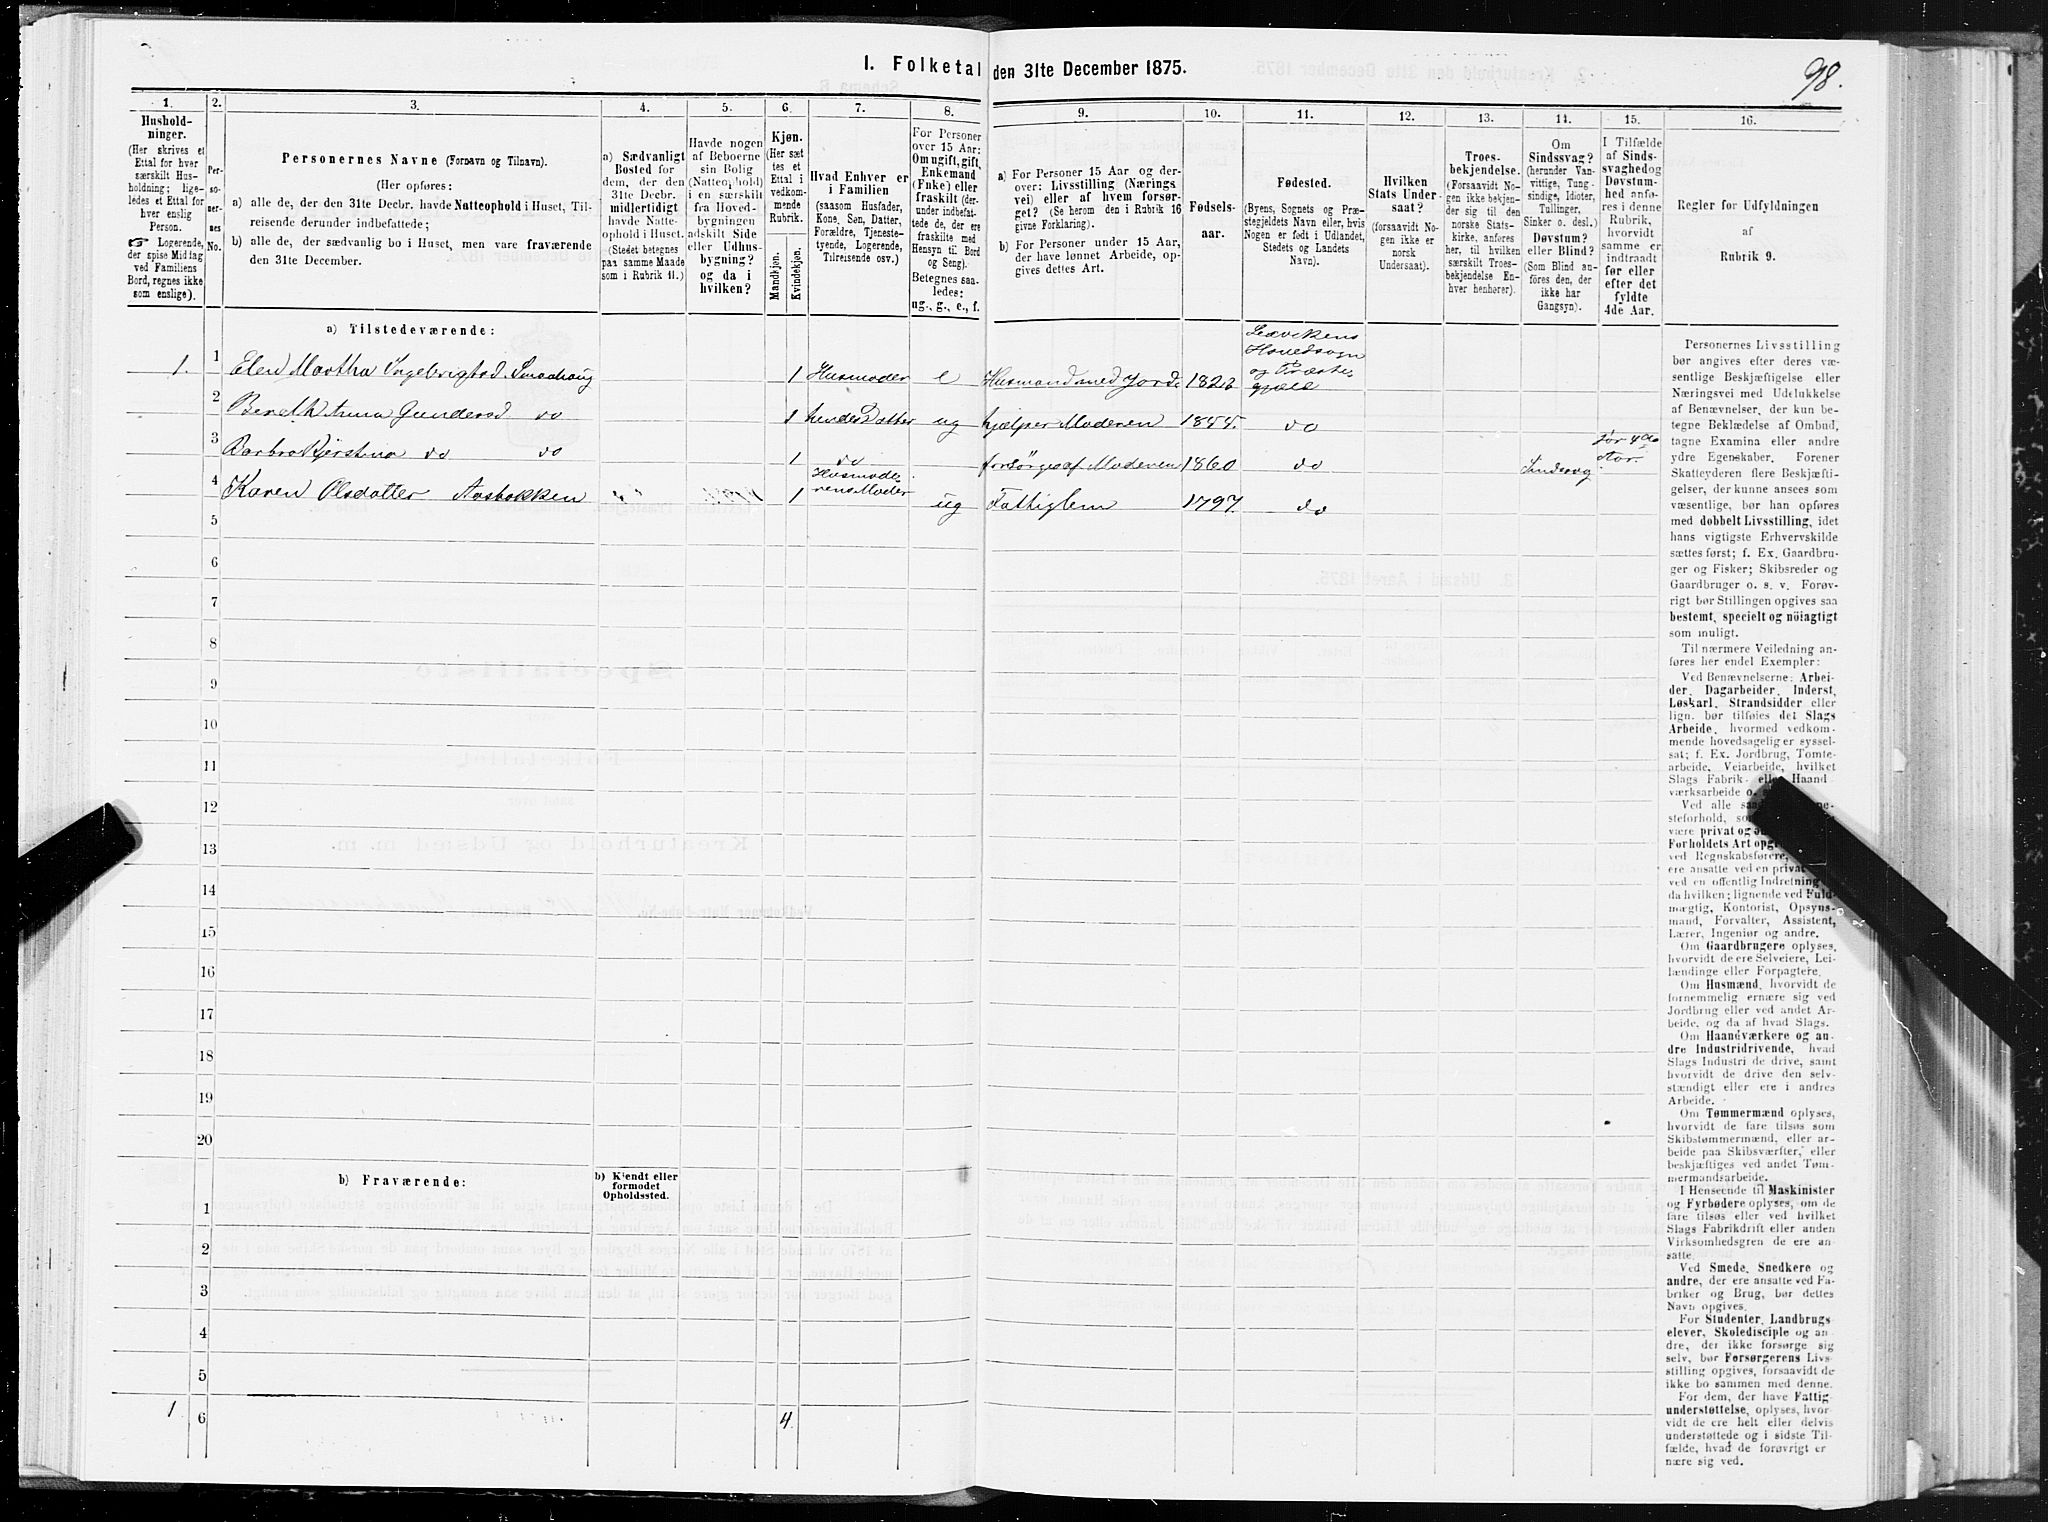 98.
I. Folketal den 31te December 1875.
1.
Hushold-
ninger.
(Her skrives et
Ettal for hver
særskilt Hus-
holdning; lige-
ledes et Ettal for
hver enslig
Person.
☞ Logerende,
der spise Middag
ved Familiens
Bord, regnes ikke
som enslige).
2.
Per-
so-
ner-
nes
No.
3.
Personernes Navne (Fornavn og Tilnavn).
(Her opføres:
a) alle de, der den 31te Decbr. havde Natteophold i Huset, Til-
reisende derunder indbefattede;
b) alle de, der sædvanlig bo i Huset, men vare fraværende
den 31te December.
4.
a) Sædvanligt
Bosted for
dem, der den
31te Decbr.
midlertidigt
havde Natte-
ophold i Huset.
(Stedet betegnes
paa samme Maade
som i Rubrik 11.)
5.
Havde nogen
af Beboerne
sin Bolig
(Natteophold)
i en særskilt
fra Hoved-
bygningen
adskilt Side
eller Udhus-
bygning?
og da i
hvilken?
6.
Kjøn.
(Her sæt
tes et
Ettal i
vedkom-
mende
Rubrik.
Mandkjøn.
Kvindekjøn.
7.
Hvad Enhver er
i Familien
(saasom Husfader,
Kone, Søn, Datter,
Forældre, Tjeneste-
tyende, Logerende,
Tilreisende osv.)
8.
For Personer
over 15 Aar:
Om ugift, gift,
Enkemand
(Enke) eller
fraskilt (der-
under indbefat-
tede de, der ere
fraskilte med
Hensyn til Bord
og Seng).
Betegnes saa-
ledes:
ug., g., e., f.
9.
a) For Personer 15 Aar og der-
over: Livsstilling (Nærings
vei) eller af hvem forsør-
get? (Se herom den i Rubrik 16
givne Forklaring).
b) For Personer under 15 Aar,
der have lønnet Arbeide, op-
gives dettes Art.
10.
Fødsels-
aar.
11.
Fødested.
(Byens, Sognets og Præ-
stegjeldets Navn eller, hvis
Nogen er født i Udlandet,
Stedets og Landets
Navn).
12.
Hvilken
Stats Under
saat?
(forsaavidt No-
gen ikke er
norsk
Undersaat).
13.
Troes-
bekjendelse.
(Forsaavidt No-
gen ikke bekjen-
der sig til den
norske Stats-
kirke, anføres
her, til hvilken
særskilt Troes-
bekjendelse En-
hver henhører).
14.
Om
Sindssvag?
(herunder Van-
vittige, Tung-
sindige, Idioter,
Tullinger,
Sinker o. desl.)
Døvstum?
eller Blind?
(Som Blind an-
føres den, der
ikke har
Gangsyn).
15.
I Tilfælde
af Sinds-
svaghed og
Døvstum-
hed anfø-
res i denne
Rubrik,
hvorvidt
samme er
indtraadt
før eller
efter det
fyldte
4de Aar.
16.
Regler for Udfyldningen
af
Rubrik 9.
a) Tilstedeværende:
1. 1 Elen Martha Ingebrigtsd. 1 Husmoder e Husmand med Jord 182 Hovedsogn og Præste-
gjeld
2 Gundersd do 1 hendes Datter ug hjelper Moderen do
3 Barbro do do 1 do forsørges af Moderen 1860 do Sindssvag før 4de
Aar.
4 Karen Olsdatter 1 Husmode-
rens Moder ug Fattiglem 1797. do
5
6
7
8
9
10
11
12
13
14
15
16
17
18
19
20
b) Fraværende:
b) Kjendt eller
formodet
Opholdssted.
1
2
3
4
5
1 6 4
Personernes Livsstilling
bør angives efter deres væ-
sentlige Beskjæftigelse eller
Næringsvei med Udelukkelse
af Benævnelser, der kun be-
tegne Beklædelse af Ombud,
tagne Examina eller andre
ydre Egenskaber. Forener
Skatteyderen flere Beskjæfti-
gelser, der kunne ansees som
væsentlige, bør han opføres
med dobbelt Livsstilling, idet
hans vigtigste Erhvervskilde
sættes først; f. Ex. Gaardbru-
ger og Fisker; Skibsreder og
Gaardbruger o. s. v. Forøv-
rigt bør Stillingen opgives saa
bestemt, specielt og nöiagtigt
som muligt.
Til nærmere Veiledning an-
føres her endel Exempler:
Ved Benævnelserne: Arbei-
der, Dagarbeider, Inderst,
Løskarl, Strandsidder eller
lign. bør tilføies det Slags
Arbeide, hvormed vedkom-
mende hovedsagelig er syssel-
sat; f. Ex. Jordbrug, Tomte-
arbeide, Veiarbeide, hvilket
Slags Fabrik- eller Haand-
værksarbeide o.
Ved alle
steforhold,
være privat og
Forholdets Art
ved Regnskabsførere,
ere ansatte ved en privat
ved en offentlig Indretning
da hvilken; lignende ved Fuld-
mægtig, Kontorist, Opsyns-
mand, Forvalter, Assistent,
Lærer, Ingeniør og andre.
Om Gaardbrugere oplyses,
hvorvidt de ere Selveiere, Lei-
lændinge eller Forpagtere.
Om Husmænd, hvorvidt de
fornemmelig ernære sig ved
Jordbrug eller ved andet Ar-
beide, og da af hvad Slags.
Om Haandværkere og an-
dre Industridrivende, hvad
Slags Industri de drive, samt
hvorvidt de drive den selv-
stændigt eller ere i andres
Arbeide.
Om Tømmermænd oplyses,
hvorvidt de fare tilsøs som
Skibstømmermænd, eller ar-
beide paa Skibsværfter, eller
beskjæftiges ved andet Tøm-
mermandsarbeide.
I Henseende til Maskinister
og Fyrbødere oplyses, om de
fare tilsøs eller ved hvilket
Slags Fabrikdrift eller anden
Virksomhedsgren de ere an-
satte.
Ved Smede, Snedkere og
andre, der ere ansatte ved Fa-
briker og Brug, bør dettes
Navn opgives.
For Studenter, Landbrugs
elever, Skoledisciple og an-
dre, der ikke forsørge sig
selv, bør Forsørgerens Livs-
stilling opgives, forsaavidt de
ikke bo sammen med denne.
For dem, der have Fattig-
understøttelse, oplyses, hvor-
vidt de ere helt eller delvis
understøttede og i sidste Til-
fælde, hvad de forøvrigt er
nære sig ved.